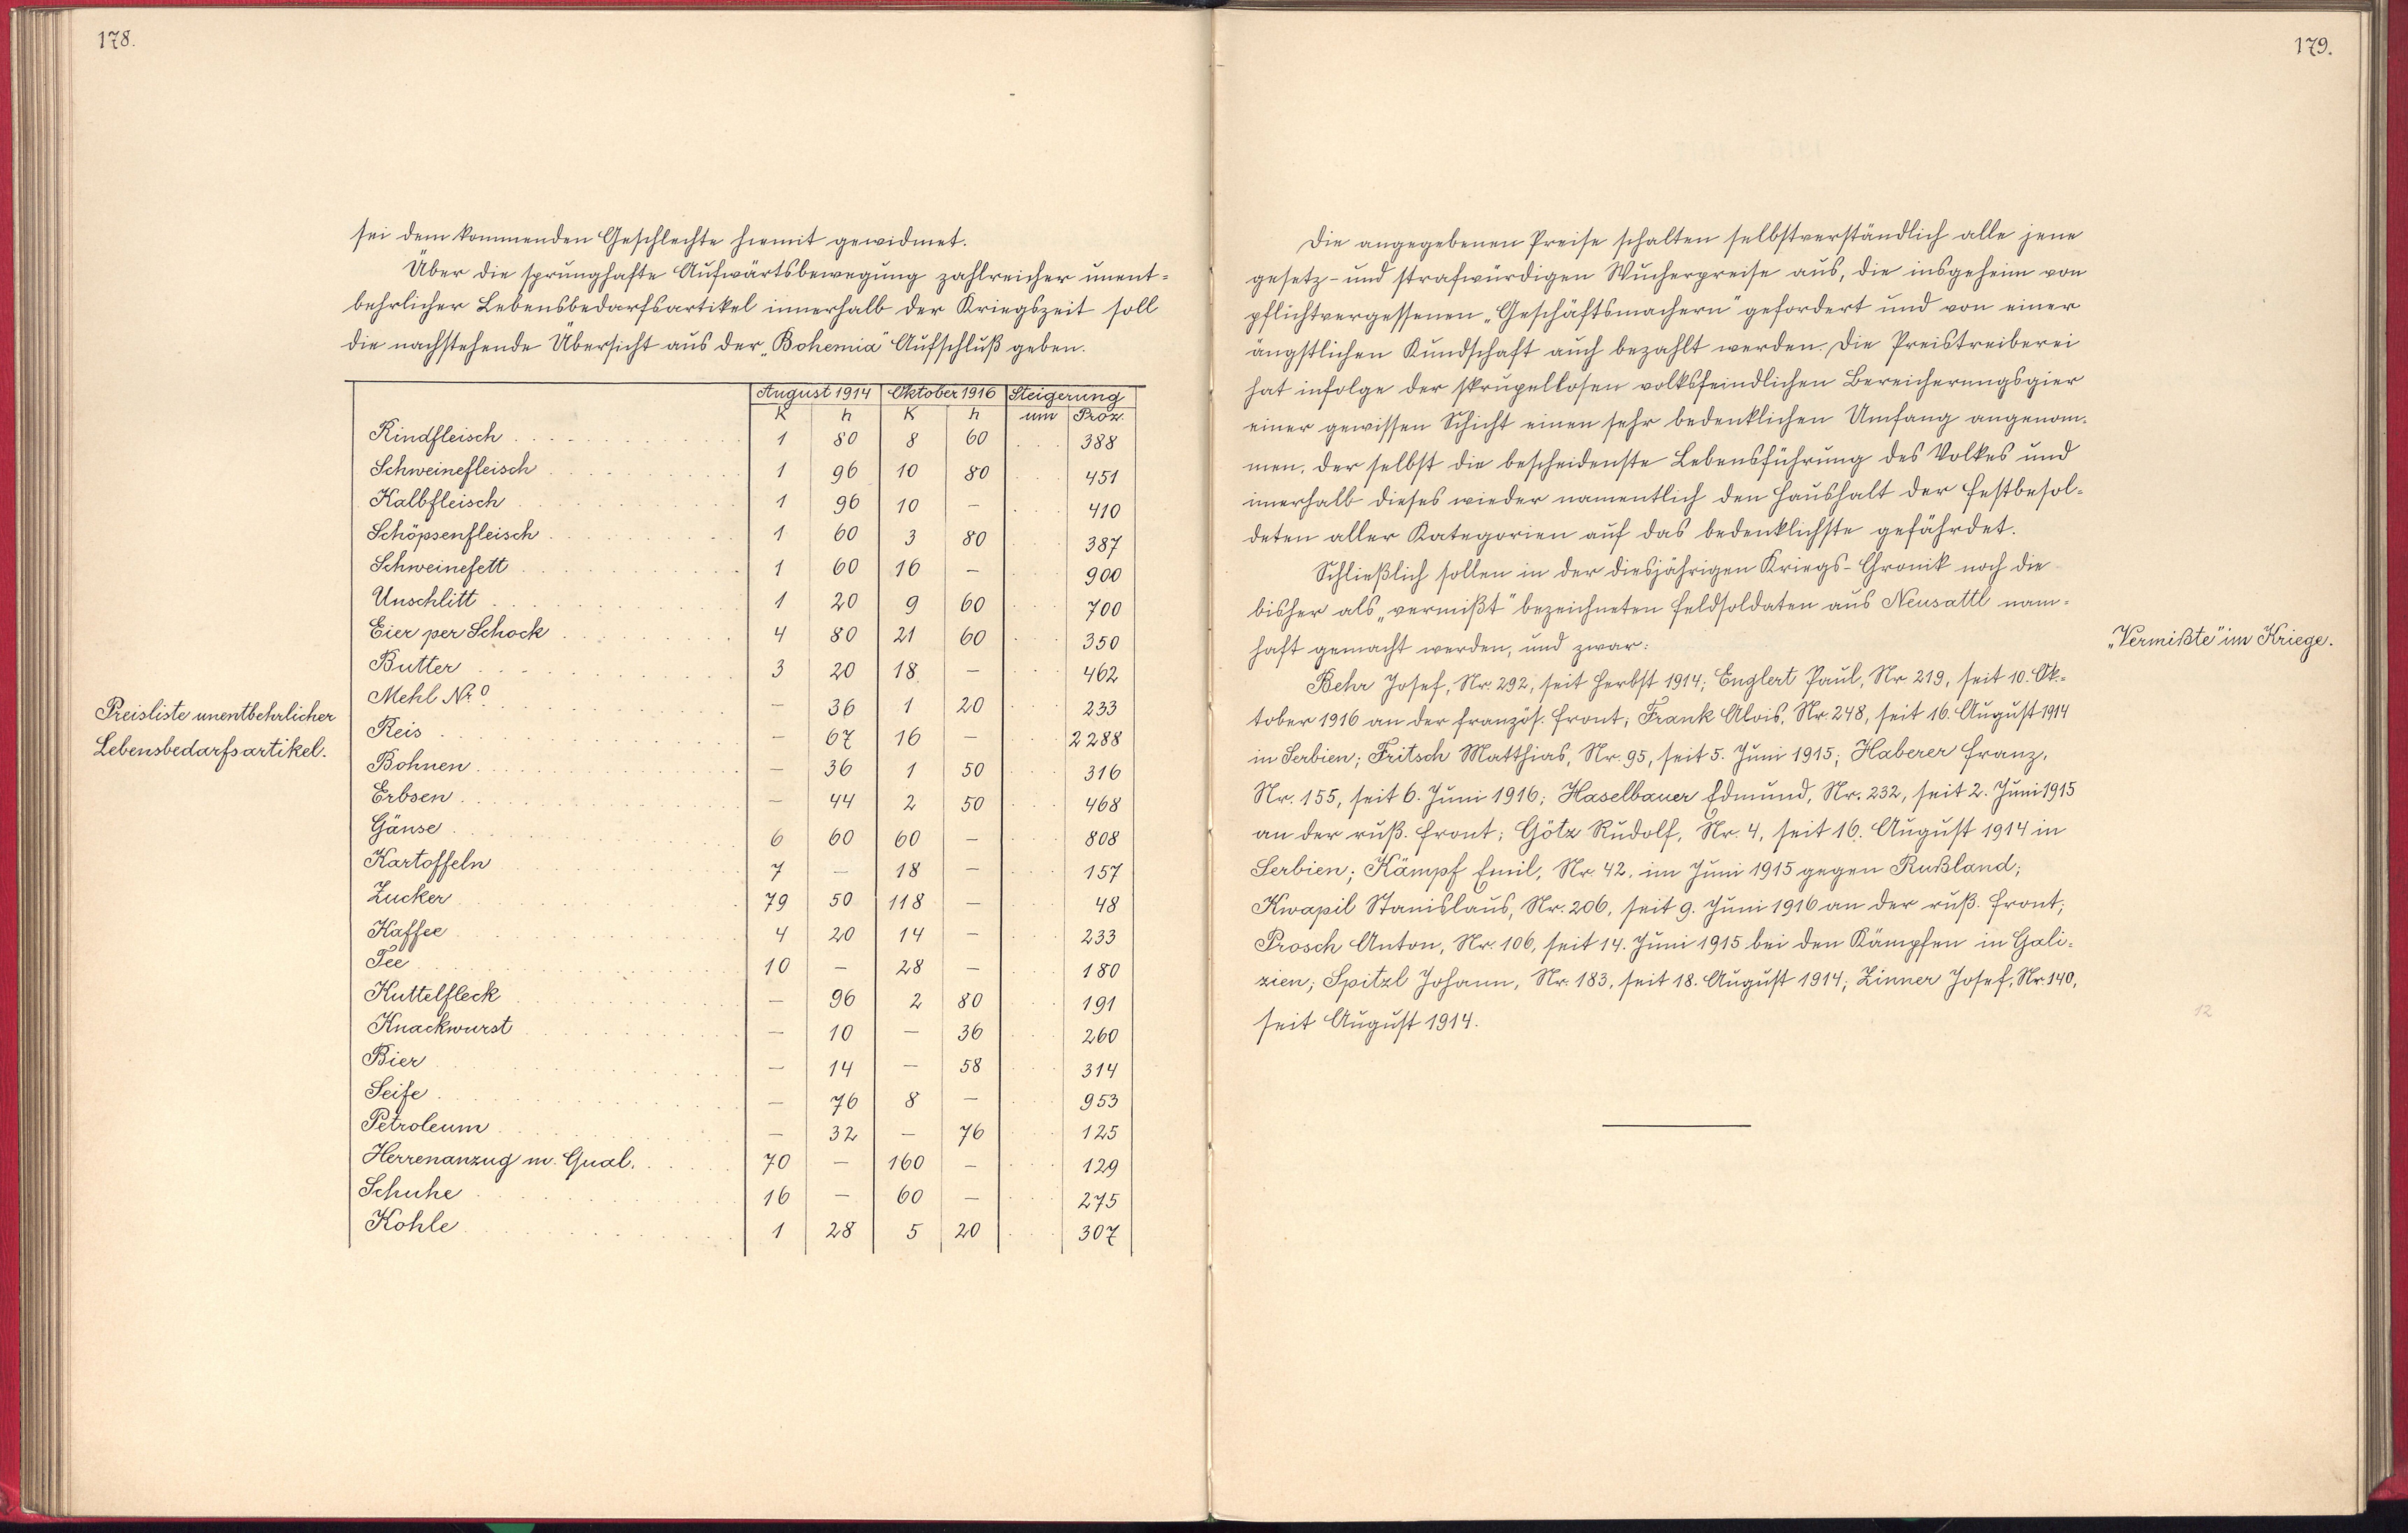 178.
sei dem kommenden Geschlechte hiemit gewidmet.
Über die sprunghafte Aufwärtsbewegung zahlreicher unent-
behrlicher Lebensbedarfsartikel innerhalb der Kriegszeit soll
die nachstehende Übersicht aus der „Bohemia" Aufschluß geben.
Preisliste unentbehrlicher
Lebensbedarfsartikel.
August 1914 Oktober 1916 Steigerung
K h K h um Proz.
Rindfleisch 1 80 8 60 388
Schweinefleisch 1 96 10 80 451
Kalbfleisch 1 96 10 — 410
Schöpsenfleisch 1 60 3 80 387
Schweinefett 1 60 16 — 900
Unschlitt 1 20 9 60 700
Eier per Schock 4 80 21 60 350
Butter 3 20 18 — 462
Mehl Nr. 0 — 36 1 20 233
Reis — 67 16 — 2288
Bohnen — 36 1 50 316
Erbsen — 44 2 50 468
Gänse 6 60 60 — 808
Kartoffeln 7 — 18 — 157
Zucker 79 50 118 — 48
Kaffee 4 20 14 — 233
Tee 10 — 28 — 180
Kuttelfleck — 96 2 80 191
Knackwurst — 10 — 36 260
Bier — 14 — 58 314
Seife — 76 8 — 953
Petroleum — 32 — 76 125
Herrenanzug m. Qual. 70 — 160 — 129
Schuhe 16 — 60 — 275
Kohle 1 28 5 20 307
179.
Die angegebenen Preise schalten selbstverständlich alle jene
gesetz- und strafwürdigen Wucherpreise aus, die insgeheim von
pflichtvergessenen „Geschäftsmachern" gefordert und von einer
ängstlichen Kundschaft auch bezahlt werden. Die Preistreiberei
hat infolge der skrupellosen volksfeindlichen Bereicherungsgier
einer gewissen Schicht einen sehr bedenklichen Umfang angenom-
men, der selbst die bescheidenste Lebensführung des Volkes und
innerhalb dieses wieder namentlich den Haushalt der Festbesol-
deten aller Kategorien auf das bedenklichste gefährdet.
Schließlich sollen in der diesjährigen Kriegs-Chronik noch die
bisher als „vermißt" bezeichneten Feldsoldaten aus Neusattl nam-
haft gemacht werden, und zwar:
„Vermißte" im Kriege.
Behr Josef, Nr. 292, seit Herbst 1914; Englert Paul, Nr. 219, seit 10. Ok-
tober 1916 an der französ. Front; Frank Alois, Nr. 248, seit 16. August 1914
in Serbien; Fritsch Matthias, Nr. 95, seit 5. Juni 1915; Haberer Franz,
Nr. 155, seit 6. Juni 1916; Haselbauer Edmund, Nr. 232, seit 2. Juni 1915
an der ruß. Front; Götz Rudolf, Nr. 4, seit 16. August 1914 in
Serbien; Kämpf Emil, Nr. 42, im Juni 1915 gegen Rußland;
Kwapil Stanislaus, Nr. 206, seit 9. Juni 1916 an der ruß. Front;
Prosch Anton, Nr. 106, seit 14. Juni 1915 bei den Kämpfen in Gali-
zien; Spitzl Johann, Nr. 183, seit 18. August 1914; Zinner Josef, Nr. 140,
seit August 1914.
12